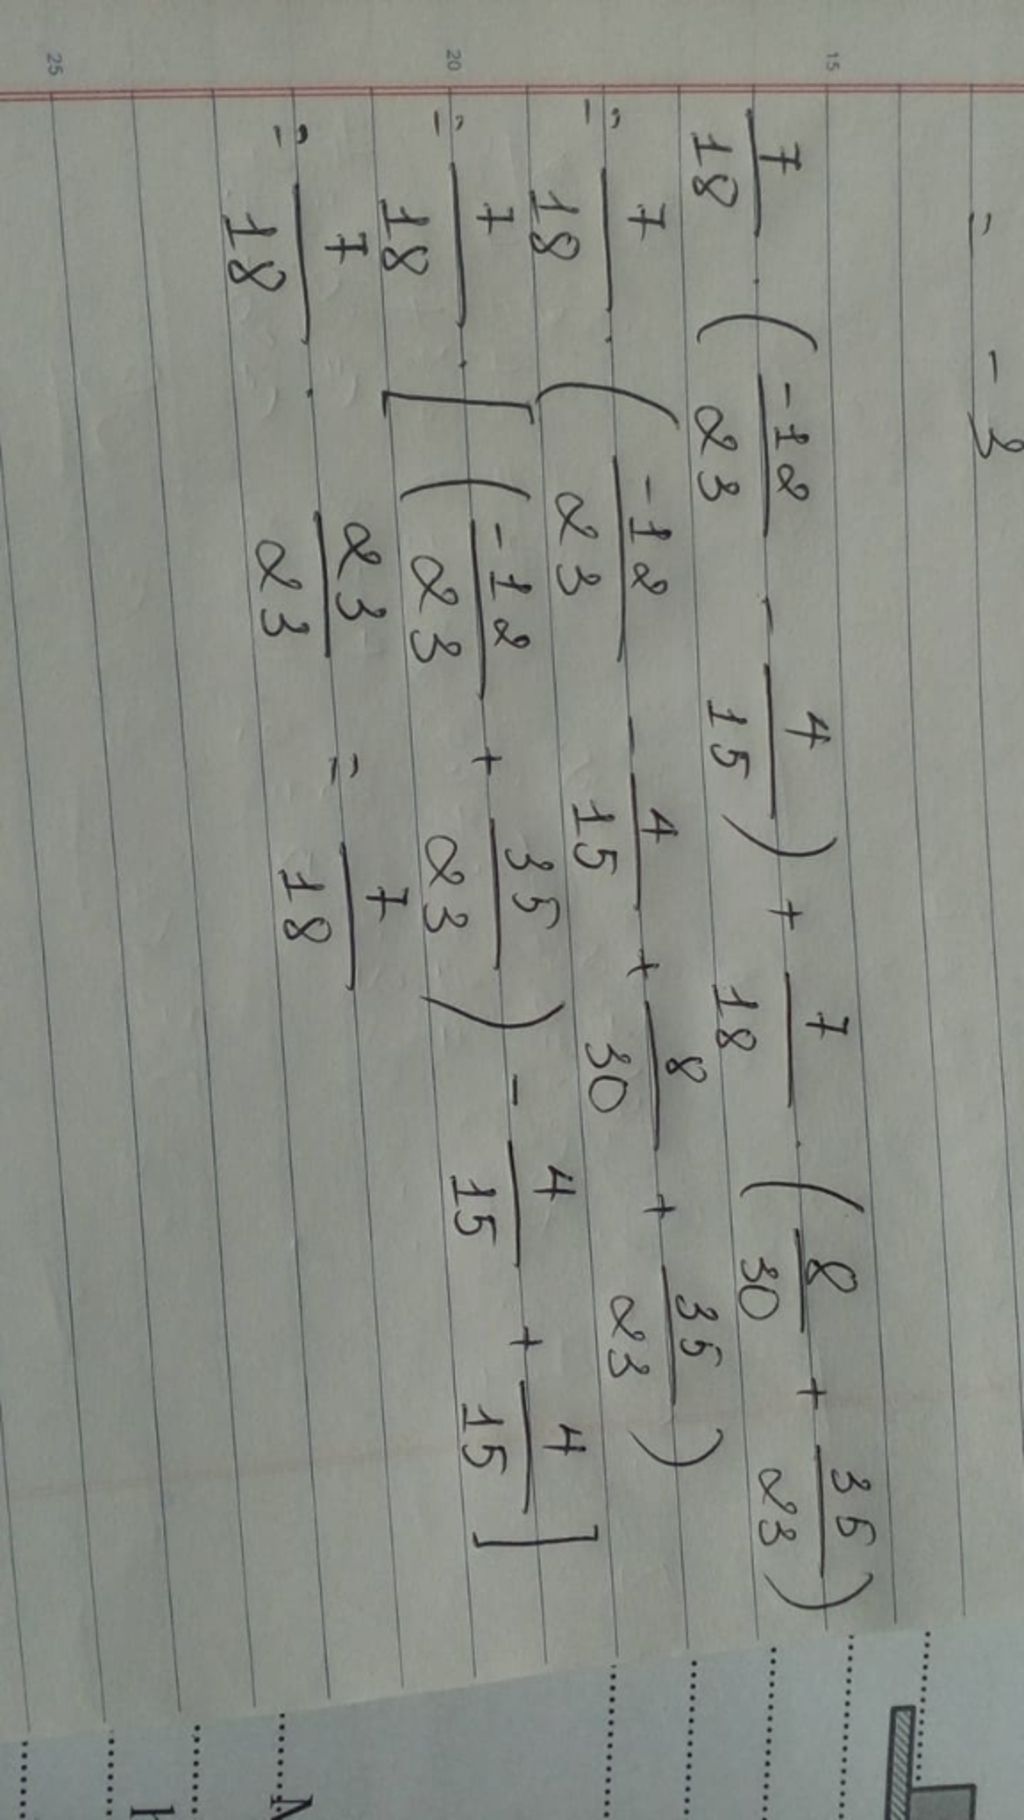 = -3
15
7/18 . (-12/23 - 4/15) + 7/18 . (8/30 + 35/23)
= 7/18 . (-12/23 - 4/15 + 8/30 + 35/23)
20
= 7/18 . [(-12/23 + 35/23) - 4/15 + 4/15]
= 7/18 . 23/23 = 7/18
25